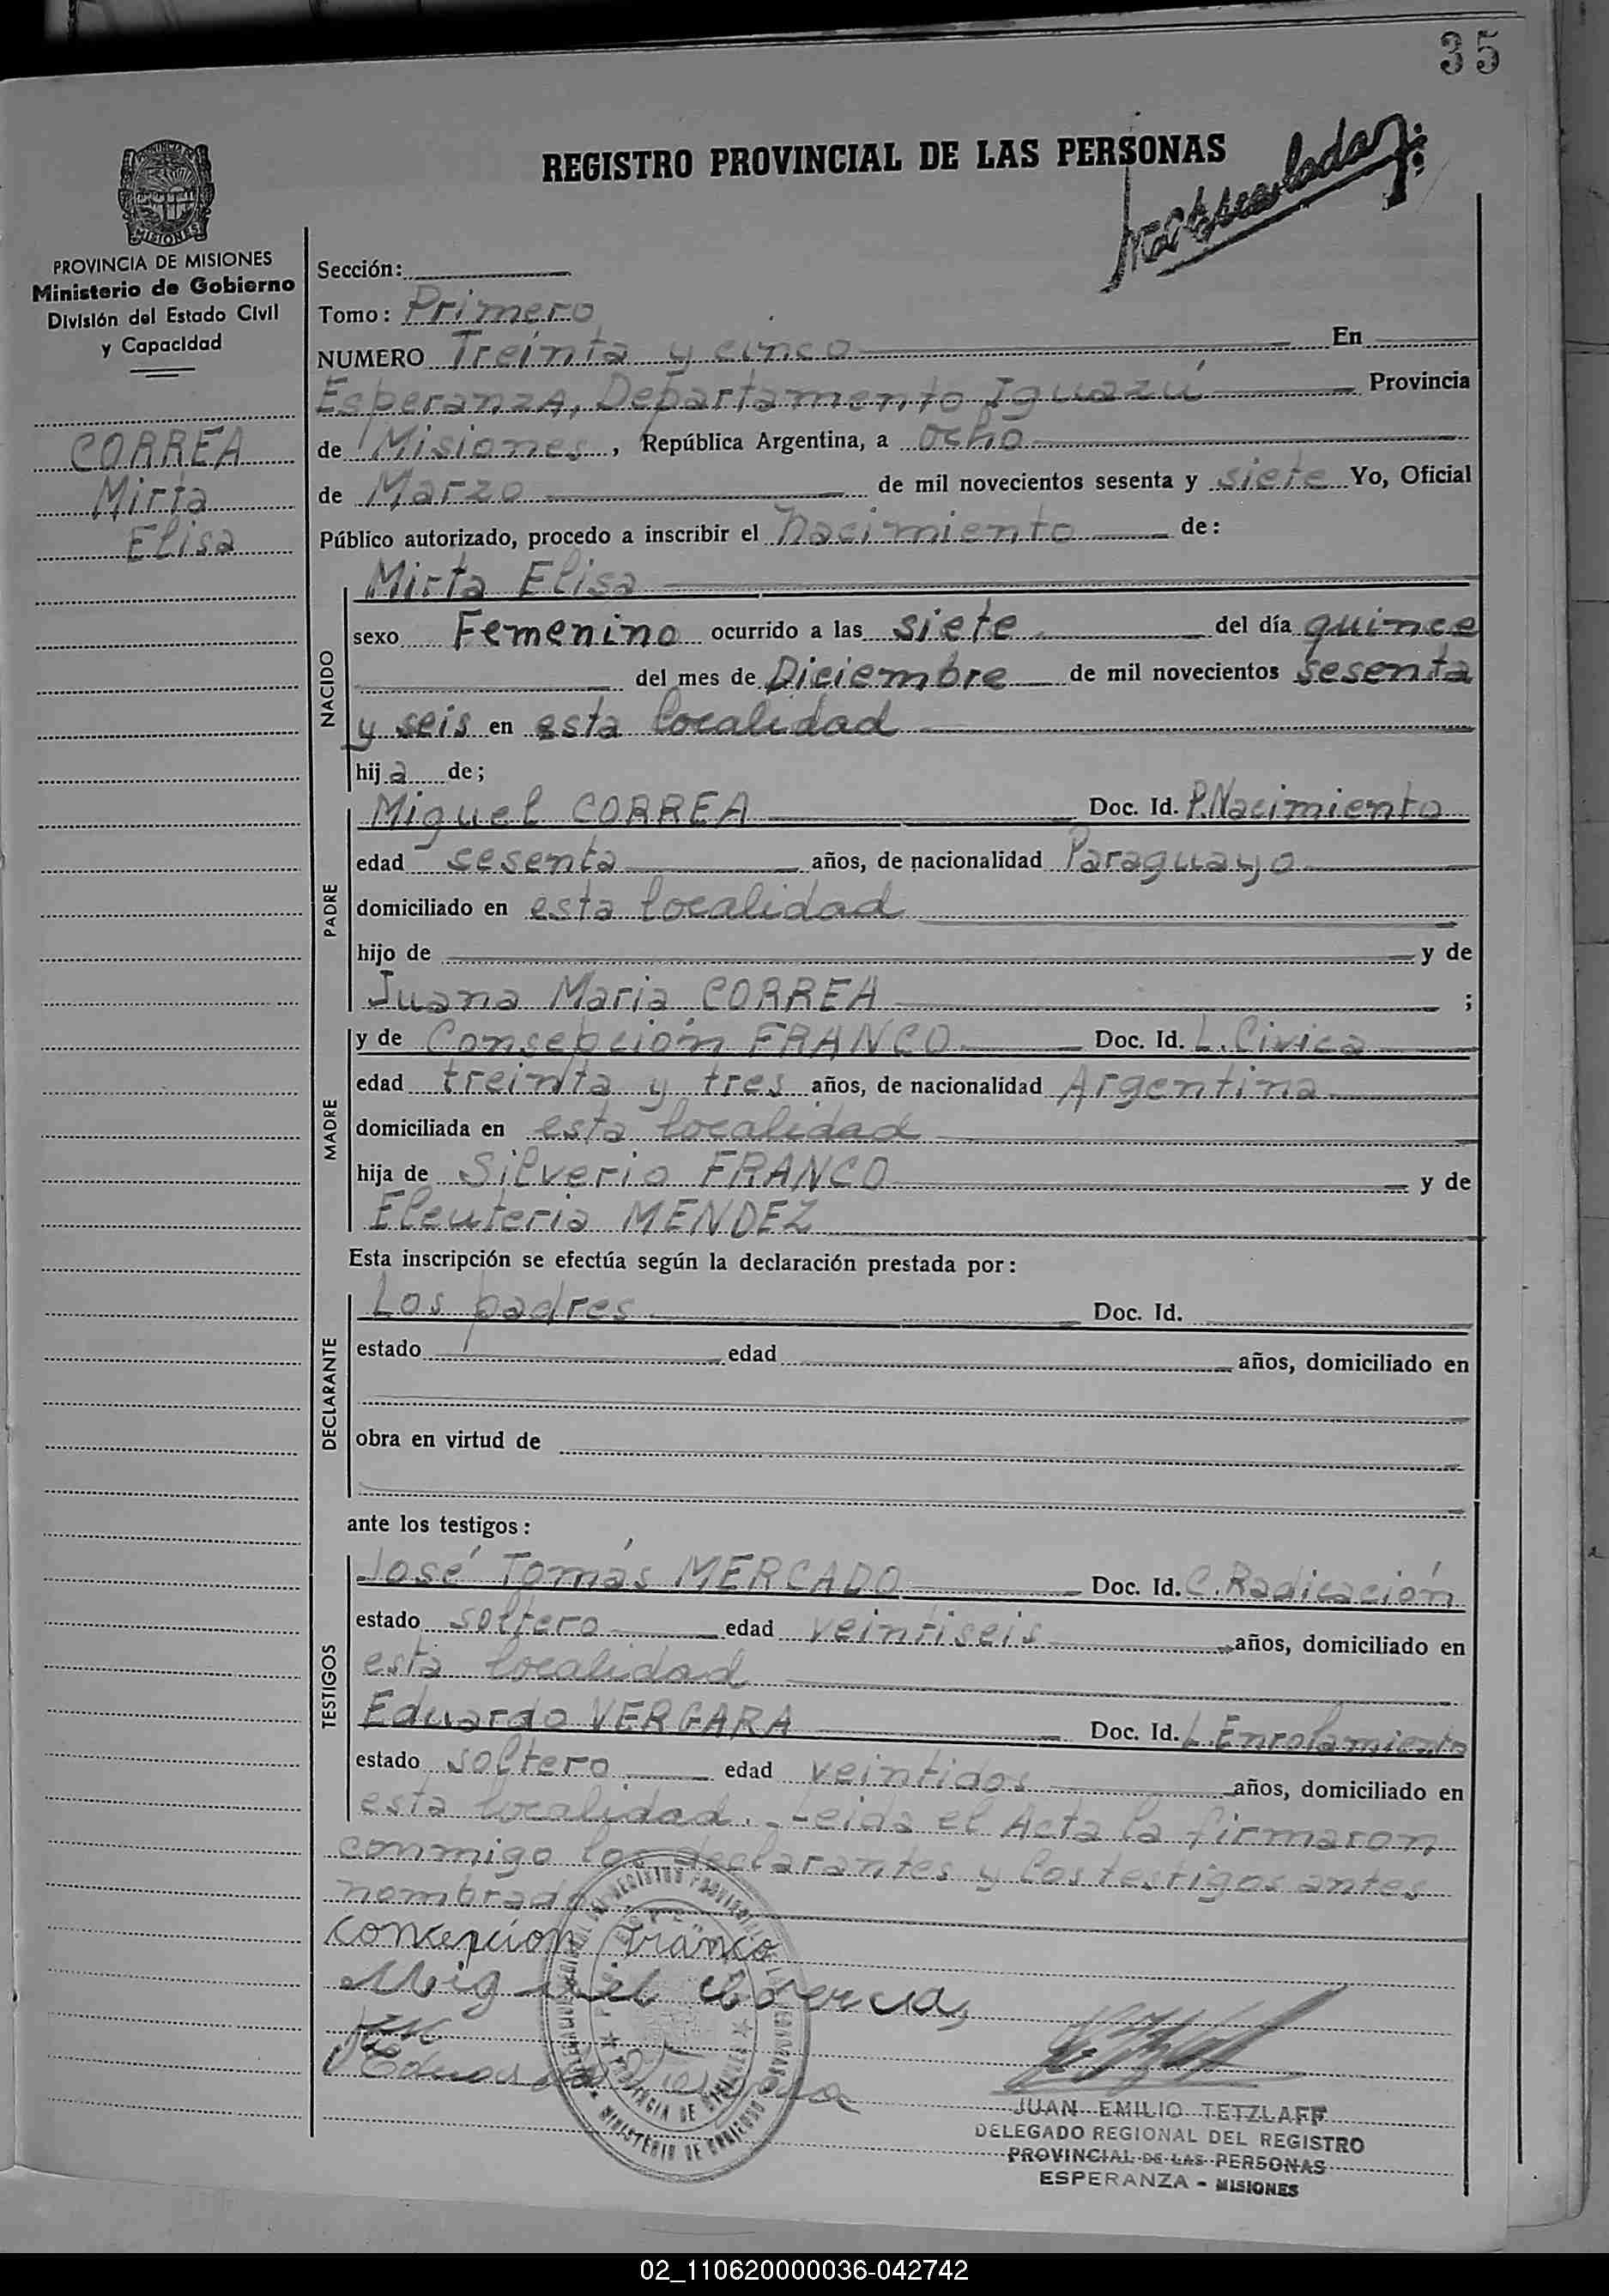 35
REGISTRO PROVINCIAL DE LAS PERSONAS
PROVINCIA DE MISIONES
Ministerio de Gobierno
División del Estado Civil
y Capacidad
CORREA
Mirta
Elisa
Sección:
Tomo: Primero
NUMERO Treinta y cinco En
Esperanza, Departamento Iguazú Provincia
de Misiones, República Argentina, a ocho
de Marzo de mil novecientos sesenta y siete Yo, Oficial
Público autorizado, procedo a inscribir el nacimiento de:
NACIDO
Mirta Elisa
sexo Femenino ocurrido a las siete del día quince
del mes de Diciembre de mil novecientos sesenta
y seis en esta localidad
hija de;
PADRE
Miguel CORREA Doc. Id. P.Nacimiento
edad sesenta años, de nacionalidad Paraguayo
domiciliado en esta localidad
hijo de y de
Juana Maria CORREA ;
MADRE
y de Consepción FRANCO Doc. Id. L. Civica
edad treinta y tres años, de nacionalidad Argentina
domiciliada en esta localidad
hija de Silverio FRANCO y de
Eleuteria MENDEZ
Esta inscripción se efectúa según la declaración prestada por:
DECLARANTE
Los padres Doc. Id.
estado edad años, domiciliado en
obra en virtud de
ante los testigos:
TESTIGOS
José Tomás MERCADO Doc. Id. C.Radicación
estado soltero edad veintiseis años, domiciliado en
esta localidad
Eduardo VERGARA Doc. Id. L.Enrolamiento
estado soltero edad veintidos años, domiciliado en
esta localidad. Leida el Acta la firmaron
conmigo los declarantes y los testigos antes
nombrados
Concepcion Franco
Miguel Correa
Eduardo Vergara
JUAN EMILIO TETZLAFF
DELEGADO REGIONAL DEL REGISTRO
PROVINCIAL DE LAS PERSONAS
ESPERANZA - MISIONES
02_110620000036-042742